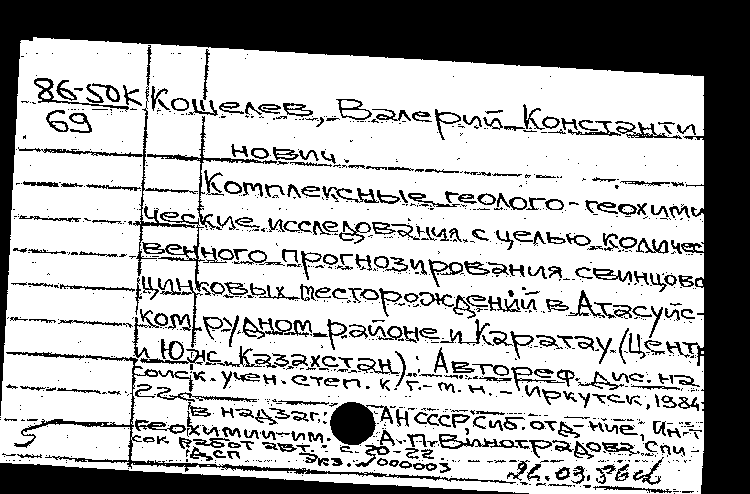 86-50К Кошелев, Валерий Константи
69
нович.
Комплексные геолого-геохими
ческие исследования с целью количес
венного прогнозирования свинцово
цинковых месторождений в Атасуйс-
ком рудном районе и Каратау (Центр
и Юж. Казахстан): Автореф. дис. на
соиск. учен. степ. к. г.-м. н. - Иркутск, 1984.
22с.
В надзаг.: АН СССР, Сиб. отд-ние, Ин-т
геохимии им. А. П. Виноградова. Спи-
сок работ авт.: с. 20-22.
ДСП экз. №000003
5